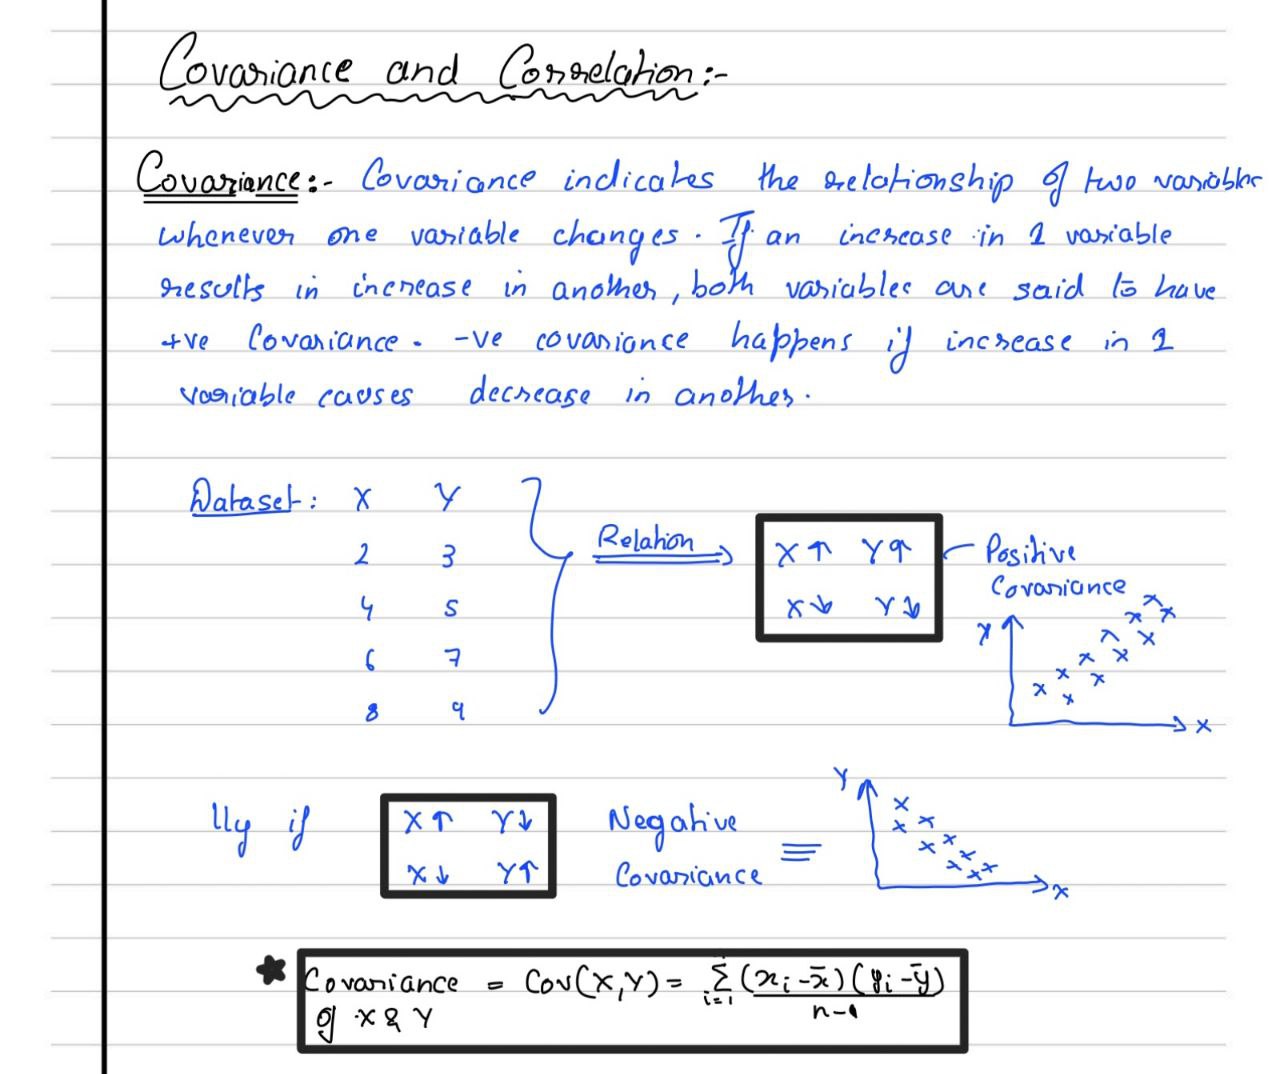 Covariance and Correlation:-
Covariance:- Covariance indicates the relationship of two variables
whenever one variable changes. If an increase in 1 variable
results in increase in another, both variables are said to have
+ve Covariance. -ve covariance happens if increase in 1
variable causes decrease in another.
Dataset: X Y
2 3
4 5
6 7
8 9
Relation
X↑ Y↑
X↓ Y↓
Positive
Covariance
Y
X
lly if
X↑ Y↓
X↓ Y↑
Negative
Covariance
≡
Y
X
★ Covariance = Cov(X,Y) = Σ i=1 (xi-x̄)(yi-ȳ) / n-1
of X & Y